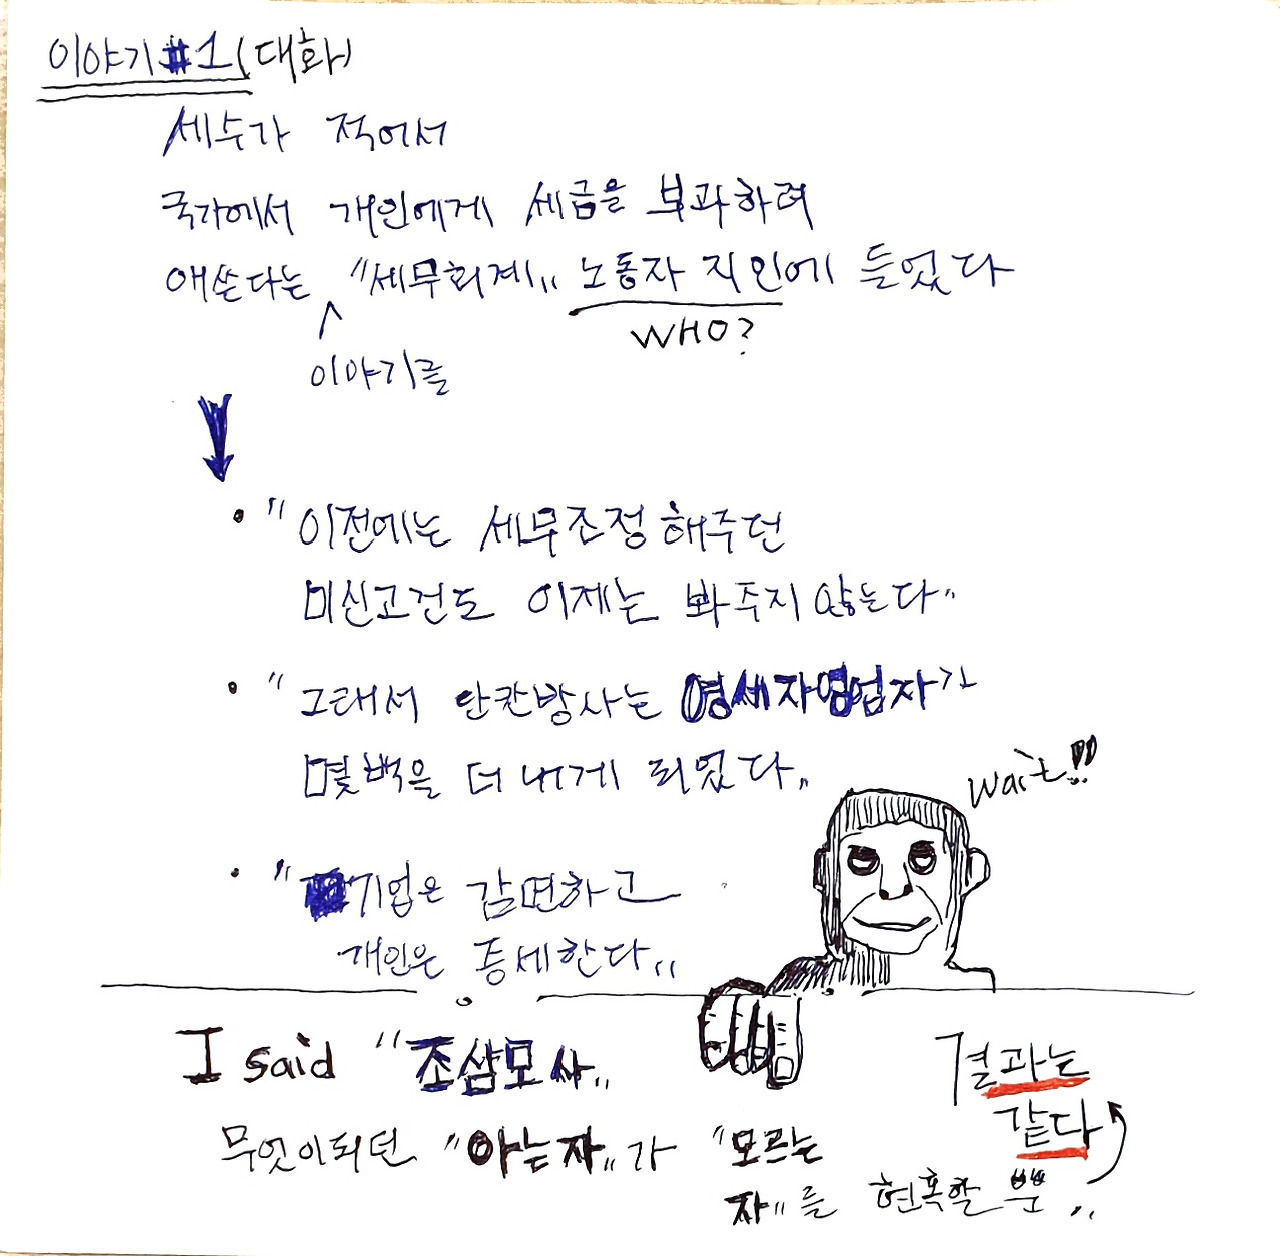 이야기#1(대화)
세수가 적어서
국가에서 개인에게 세금을 부과하려
애쓴다는 "세무회계" 노동자 지인에 들었다
WHO?
이야기를
"이전에는 세무조정 해주던
미신고건도 이제는 봐주지 않는다"
"그래서 단칸방사는 영세자영업자가
몇백을 더 내게 되었다"
wait!!
"기업은 감면하고
개인은 증세한다"
I said "조삼모사"
결과는
같다
무엇이되던 "아는자"가 "모르는
자"를 현혹할 뿐..